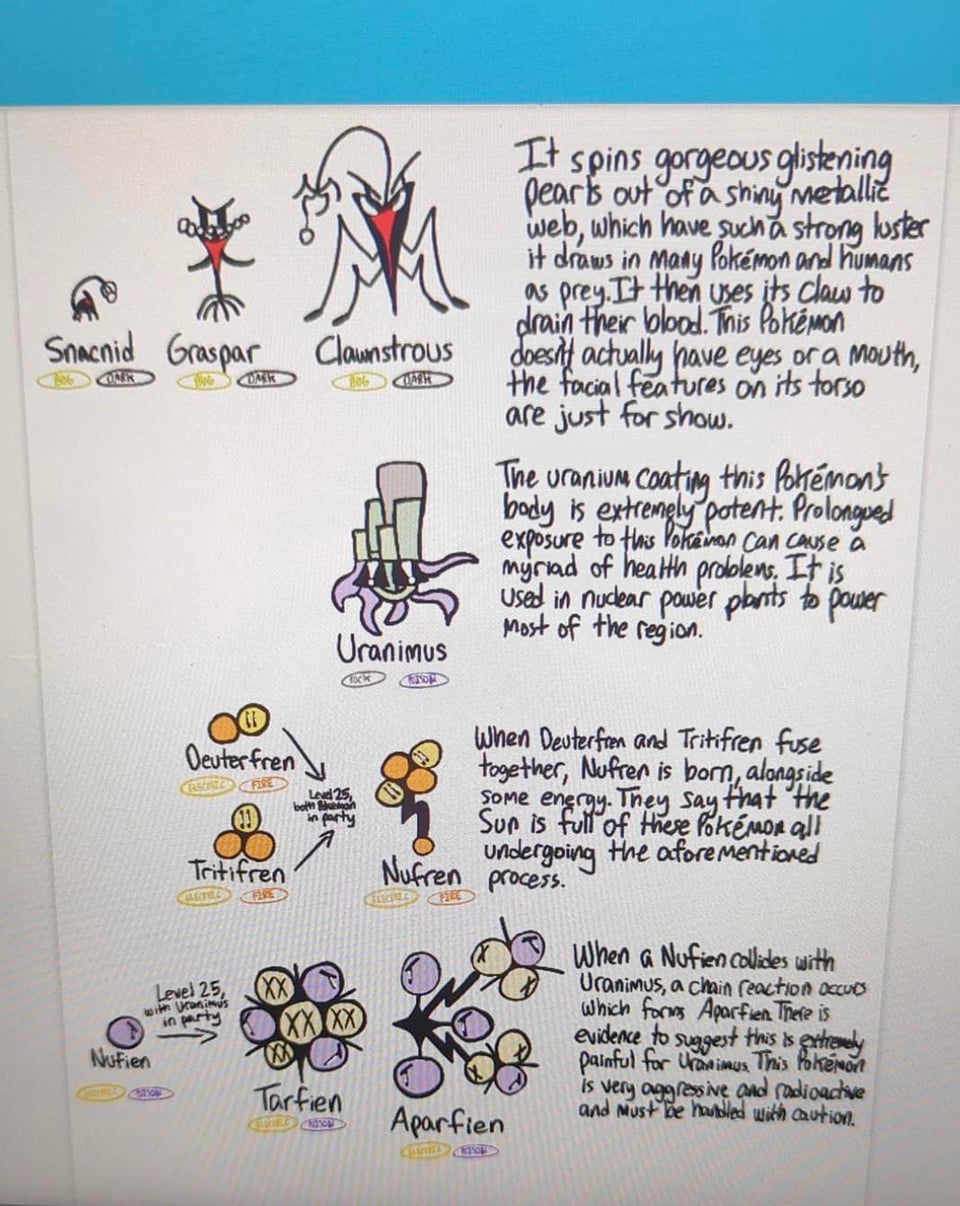 It spins gorgeous glistening
pearls out of a shiny metallic
web, which have such a strong luster
it draws in many Pokémon and humans
as prey. It then uses its claw to
drain their blood. This Pokémon
doesn't actually have eyes or a mouth,
the facial features on its torso
are just for show.
Snacnid Graspar Clawnstrous
BUG DARK BUG DARK BUG DARK
The uranium coating this Pokémon's
body is extremely potent. Prolongued
exposure to this Pokémon can cause a
myriad of health problems. It is
used in nuclear power plants to power
most of the region.
Uranimus
ROCK POISON
Deuterfren
ELECTRIC FIRE
Level 25,
both Pokémon
in party
Tritifren
ELECTRIC FIRE
Nufren
ELECTRIC FIRE
When Deuterfren and Tritifren fuse
together, Nufren is born, alongside
some energy. They say that the
Sun is full of these Pokémon all
undergoing the aforementioned
process.
Nufien
ELECTRIC POISON
Level 25,
with Uranimus
in party
XX
XX XX
XX
Tarfien
ELECTRIC POISON
X
X
X
X
Aparfien
ELECTRIC POISON
When a Nufien collides with
Uranimus, a chain reaction occurs
which forms Aparfien. There is
evidence to suggest this is extremely
painful for Uranimus. This Pokémon
is very aggressive and radioactive
and must be handled with caution.